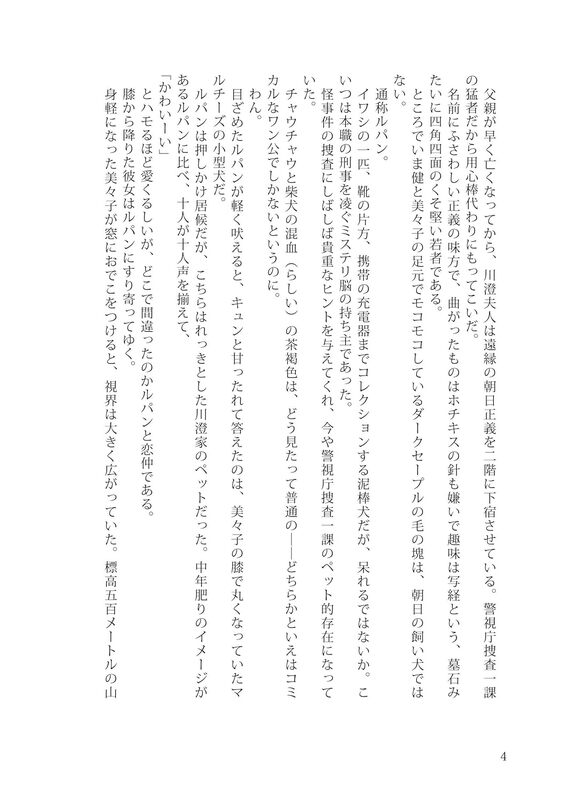 父親が早く亡くなってから、川澄夫人は遠縁の朝日正義を二階に下宿させている。警視庁捜査一課
の猛者だから用心棒代わりにもってこいだ。
名前にふさわしい正義の味方で、曲がったものはホチキスの針も嫌いで趣味は写経という、墓石み
たいに四角四面のくそ堅い若者である。
ところでいま健と美々子の足元でモコモコしているダークセーブルの毛の塊は、朝日の飼い犬では
ない。
通称ルパン。
イワシの一匹、靴の片方、携帯の充電器までコレクションする泥棒犬だが、呆れるではないか。こ
いつは本職の刑事を凌ぐミステリ脳の持ち主であった。
怪事件の捜査にしばしば貴重なヒントを与えてくれ、今や警視庁捜査一課のペット的存在になって
いた。
チャウチャウと柴犬の混血（らしい）の茶褐色は、どう見たって普通の――どちらかといえばコミ
カルなワン公でしかないというのに。
わん。
目ざめたルパンが軽く吠えると、キュンと甘ったれて答えたのは、美々子の膝で丸くなっていたマ
ルチーズの小型犬だ。
ルパンは押しかけ居候だが、こちらはれっきとした川澄家のペットだった。中年肥りのイメージが
あるルパンに比べ、十人が十人声を揃えて、
「かわいーい」
とハモるほど愛くるしいが、どこで間違ったのかルパンと恋仲である。
膝から降りた彼女はルパンにすり寄ってゆく。
身軽になった美々子が窓におでこをつけると、視界は大きく広がっていた。標高五百メートルの山
4